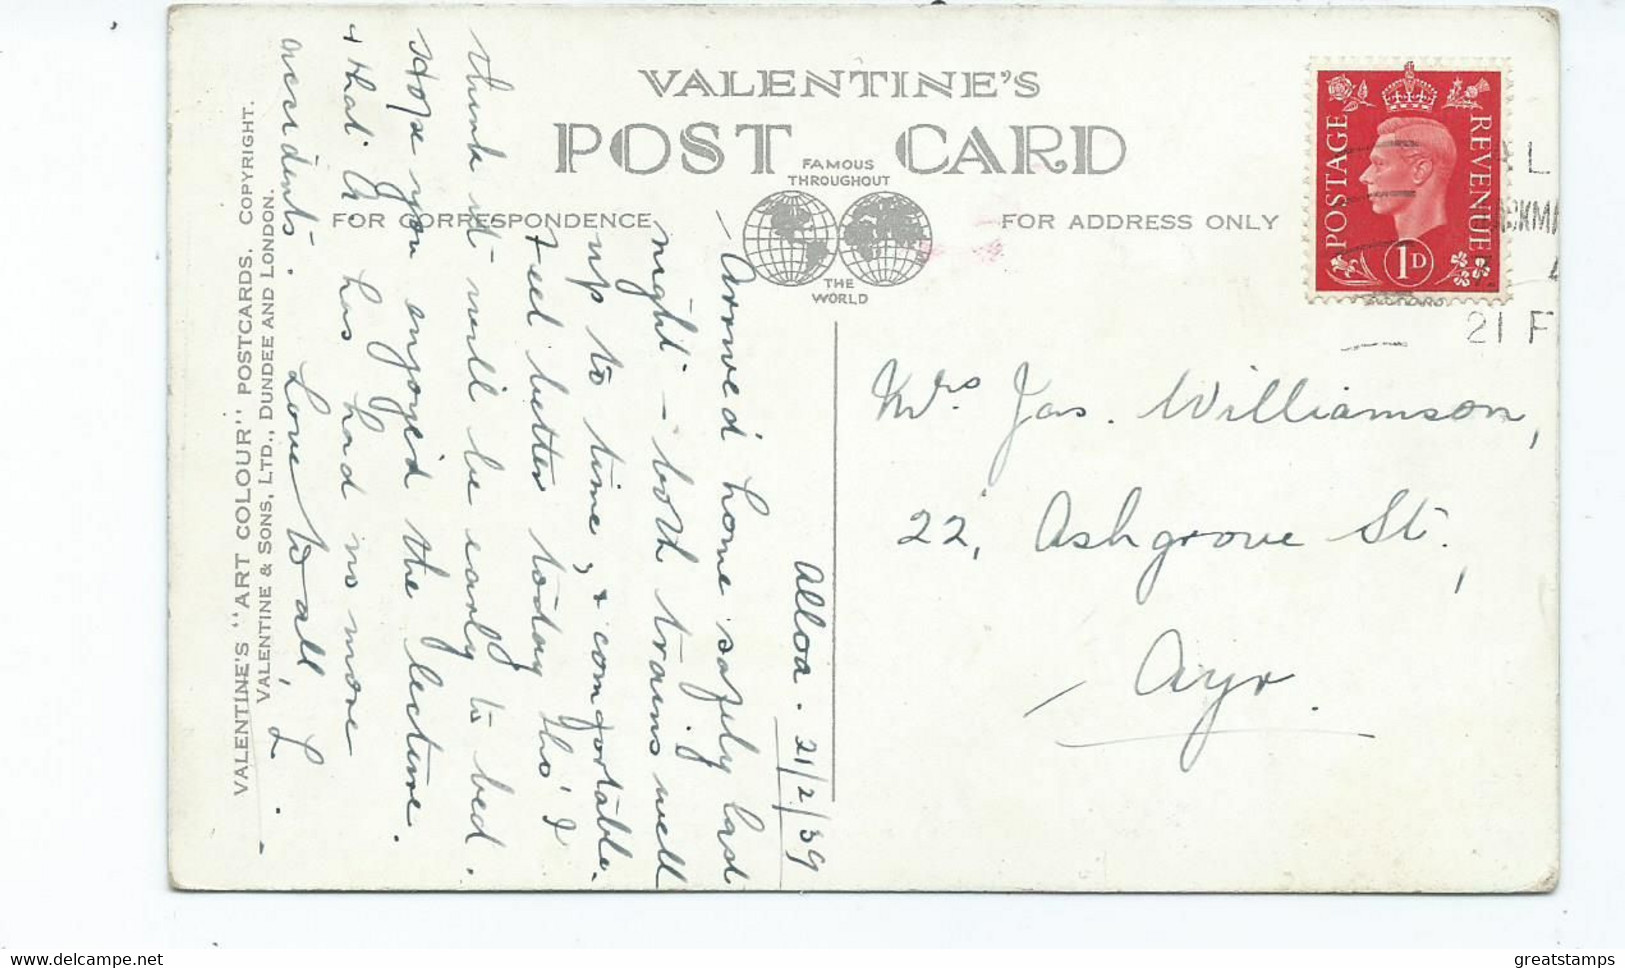 VALENTINE'S
POST CARD
FAMOUS
THROUGHOUT
THE
WORLD
FOR CORRESPONDENCE
FOR ADDRESS ONLY
POSTAGE
REVENUE
1D
AL
21 F
Alloa. 21/2/39
Arrived home safely last
night - both trains well
up to time, & comfortable.
Feel better today tho' I
think it will be early to bed.
Hope you enjoyed the lecture.
& that A. has had no more
accidents.
Love to all, L.
VALENTINE'S "ART COLOUR" POSTCARDS. COPYRIGHT.
VALENTINE & SONS, LTD., DUNDEE AND LONDON.
Mrs Jas. Williamson,
22, Ashgrove St.,
Ayr.
delcampe.net
greatstamps